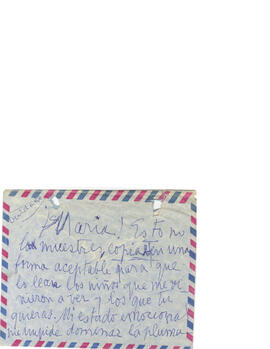 ¡Maria! Esto no
lo muestres, copialo en una
forma aceptable para que
lo lean los niños que me vi
nieron a ver y los que tu
quieras. Mi estado emociona
me impide dominar la pluma